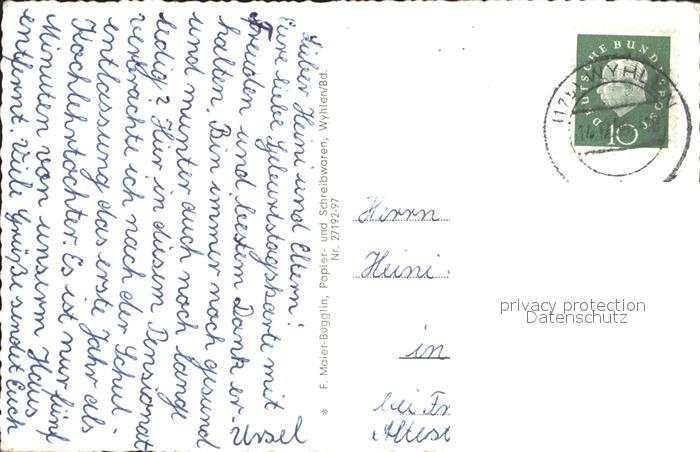 Lieber Heini und Eltern!
Eure liebe Geburtstagskarte mit
Freuden und bestem Dank er-
halten. Bin immer noch gesund
und munter auch noch lange
ledig? Hier in diesem Pensionat
verbrachte ich nach der Schul-
entlassung das erste Jahr als
Kochlehrtochter. Es ist nur fünf
Minuten von unserm Haus
entfernt. Viele Grüße sendet Euch
Ursel
* F. Maier-Bugglin, Papier- und Schreibwaren, Wyhlen/Bd.
Nr. 27192-97
DEUTSCHE BUNDESPOST
10
WYHLEN
Herrn
Heini
in
bei Fr
Altest
privacy protection
Datenschutz